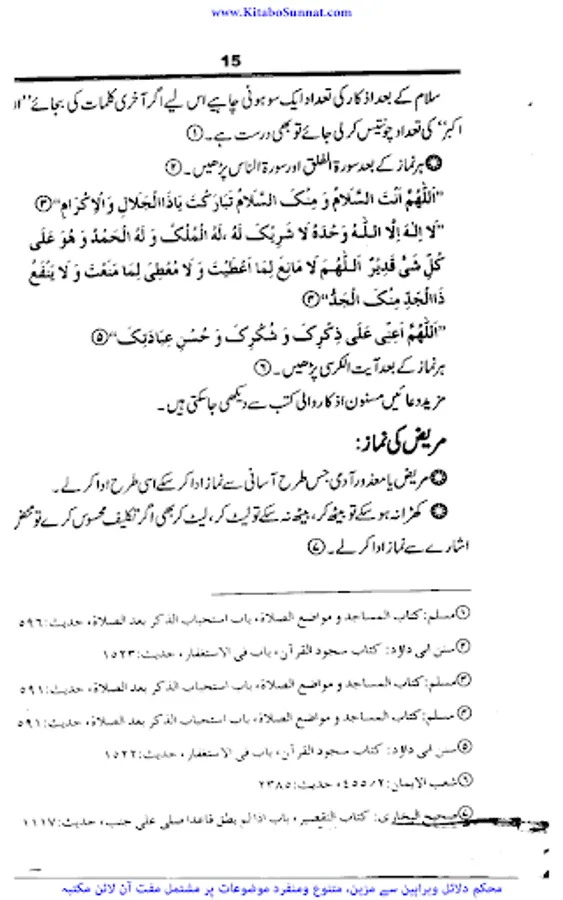 www.KitaboSunnat.com
15
سلام کے بعد اذکار کی تعداد ایک سو ہونی چاہیے اس لیے اگر آخری کلمات کی بجائے "ا
اکبر" کی تعداد چونتیس کر لی جائے تو بھی درست ہے۔ ①
✪ ہر نماز کے بعد سورۃ الفلق اور سورۃ الناس پڑھیں۔ ②
"اَللّٰهُمَّ اَنْتَ السَّلَامُ وَ مِنْكَ السَّلَامُ تَبَارَكْتَ يَاذَاالْجَلَالِ وَالْاِكْرَامِ" ③
"لَا اِلٰهَ اِلَّا اللّٰهُ وَحْدَهُ لَا شَرِيْكَ لَهُ ،لَهُ الْمُلْكُ وَ لَهُ الْحَمْدُ وَ هُوَ عَلٰى
كُلِّ شَىْءٍ قَدِيْرٌ اَللّٰهُمَّ لَا مَانِعَ لِمَا اَعْطَيْتَ وَ لَا مُعْطِىَ لِمَا مَنَعْتَ وَ لَا يَنْفَعُ
ذَاالْجَدِّ مِنْكَ الْجَدُّ" ④
"اَللّٰهُمَّ اَعِنِّى عَلٰى ذِكْرِكَ وَ شُكْرِكَ وَ حُسْنِ عِبَادَتِكَ" ⑤
ہر نماز کے بعد آیت الکرسی پڑھیں۔ ⑥
مزید دعائیں مسنون اذکار والی کتب سے دیکھی جا سکتی ہیں۔
مریض کی نماز:
✪ مریض یا معذور آدمی جس طرح آسانی سے نماز ادا کر سکے اسی طرح ادا کر لے۔
✪ کھڑا نہ ہو سکے تو بیٹھ کر، بیٹھ نہ سکے تو لیٹ کر، لیٹ کر بھی اگر تکلیف محسوس کرے تو محض
اشارے سے نماز ادا کر لے۔ ⑦
① مسلم: کتاب المساجد و مواضع الصلاۃ، باب استحباب الذکر بعد الصلاۃ، حدیث: ٥٩٦
② سنن ابی داؤد: کتاب سجود القرآن، باب فی الاستغفار، حدیث: ١٥٢٣
③ مسلم: کتاب المساجد و مواضع الصلاۃ، باب استحباب الذکر بعد الصلاۃ، حدیث: ٥٩١
④ مسلم: کتاب المساجد و مواضع الصلاۃ، باب استحباب الذکر بعد الصلاۃ، حدیث: ٥٩١
⑤ سنن ابی داؤد: کتاب سجود القرآن، باب فی الاستغفار، حدیث: ١٥٢٢
⑥ شعب الایمان: ٢/٤٥٥، حدیث: ٢٣٨٥
⑦ صحیح البخاری: کتاب التقصیر، باب اذا لم یطق قاعدا صلی علی جنب، حدیث: ١١١٧
محکم دلائل وبراہین سے مزین، متنوع ومنفرد موضوعات پر مشتمل مفت آن لائن مکتبہ